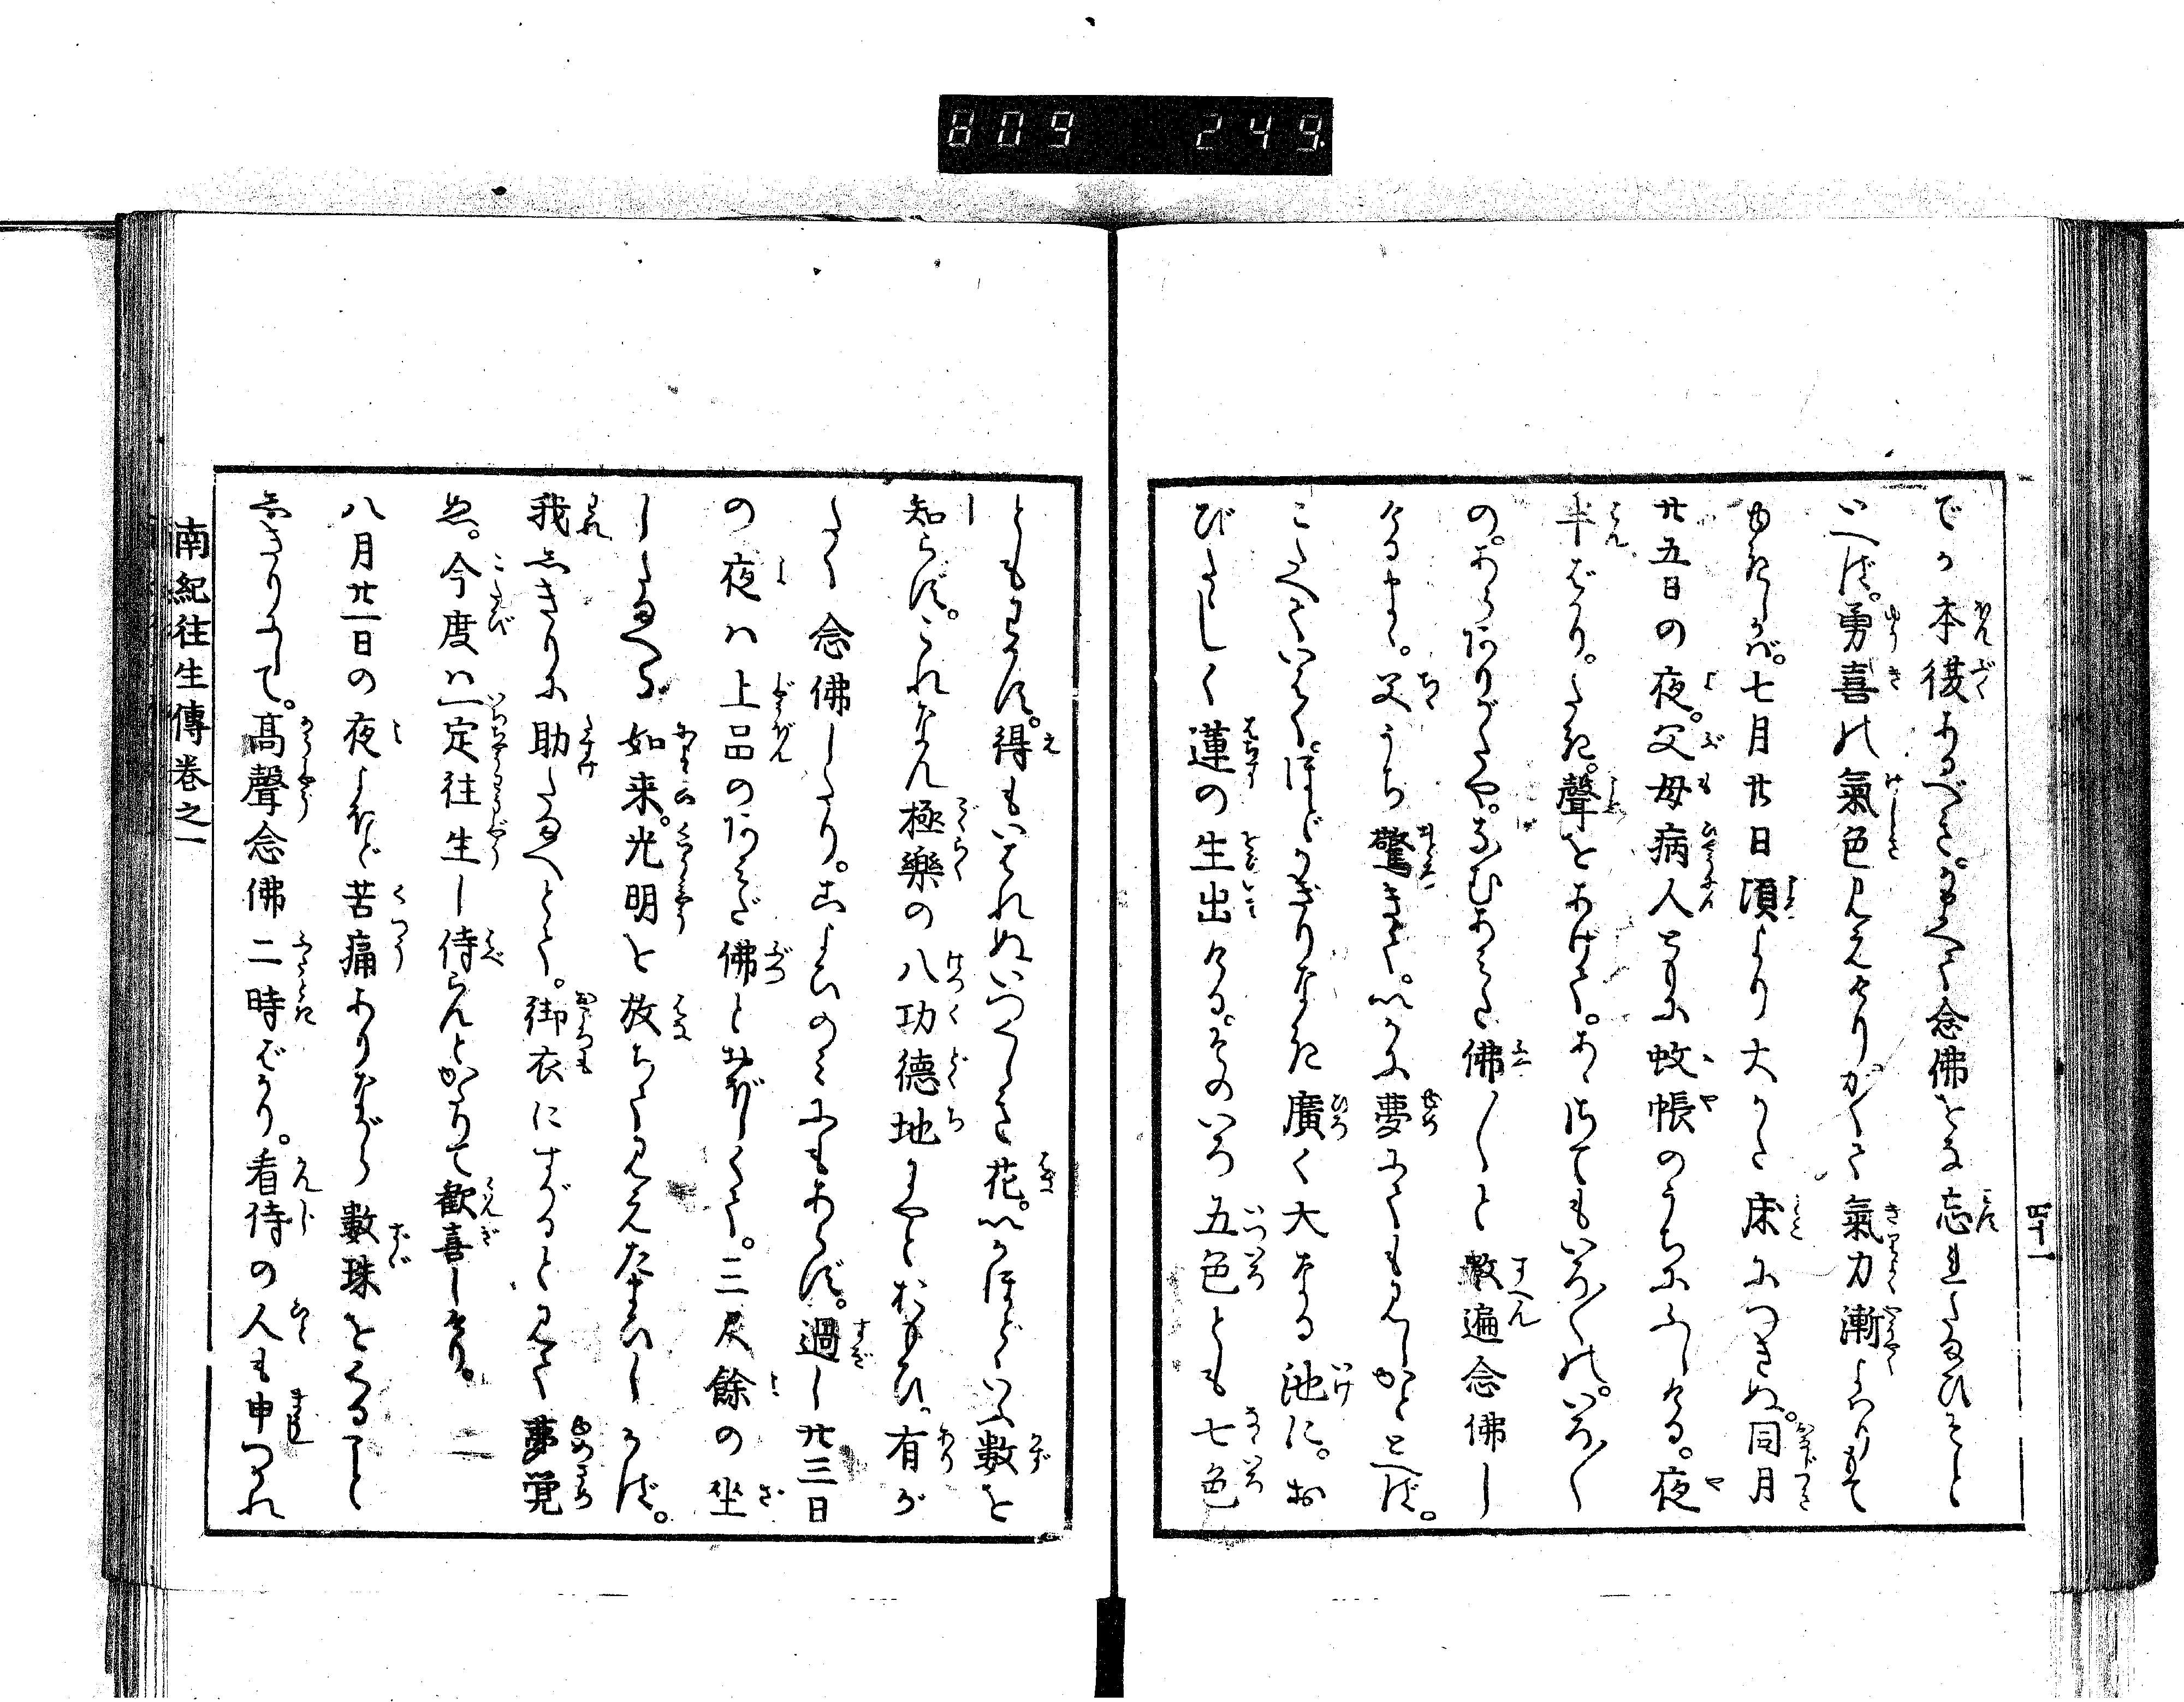 809 249
四十一
でか本復あるべき。かまへて念佛をな忘れたまひそと
いへば。勇喜の氣色見えけりかくて氣力漸よはりもて
ゆきしが。七月廿日頃より大かた床につきぬ。同月
廿五日の夜。父母病人ともに蚊帳のうちにふしける。夜
半ばかり。たき。聲をあげて。あゝさてもいろ〳〵の。いろ〳〵
の。あらありがたや。なむあみだ佛〳〵と數遍念佛し
けるまゝ。父うち驚きて。いかに夢にてもみしかととへば。
こたへていはく。ほどかぎりなき廣く大なる池に。お
びたゝしく蓮の生出ける。そのいろ五色とも七色
ともわかず。得もいはれぬいつくしき花。いかほどといふ數を
知らず。これなん極樂の八功德池にやとおもひ。有が
たく念佛したり。こよひのみにもあらず。過し廿三日
の夜は上品のあみだ佛とおぼしくて。三尺餘の坐
したまへる如来。光明を放ちて見えたまひしかば。
我しきりに助たまへとて。御衣にすがると見て夢覚
ぬ。今度は一定往生し侍らんとかたりて歡喜しけり。
八月廿一日の夜よほど苦痛ありながら數珠をくること
しきりにて。髙聲念佛二時ばかり。看侍の人も申つかれ
南紀往生傳卷之一